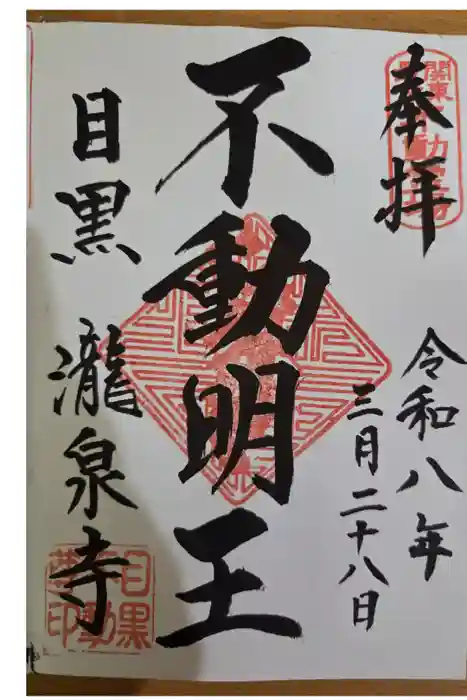 奉拝
令和八年
三月二十八日
不動明王
目黒 瀧泉寺
目黒
不動
尊印